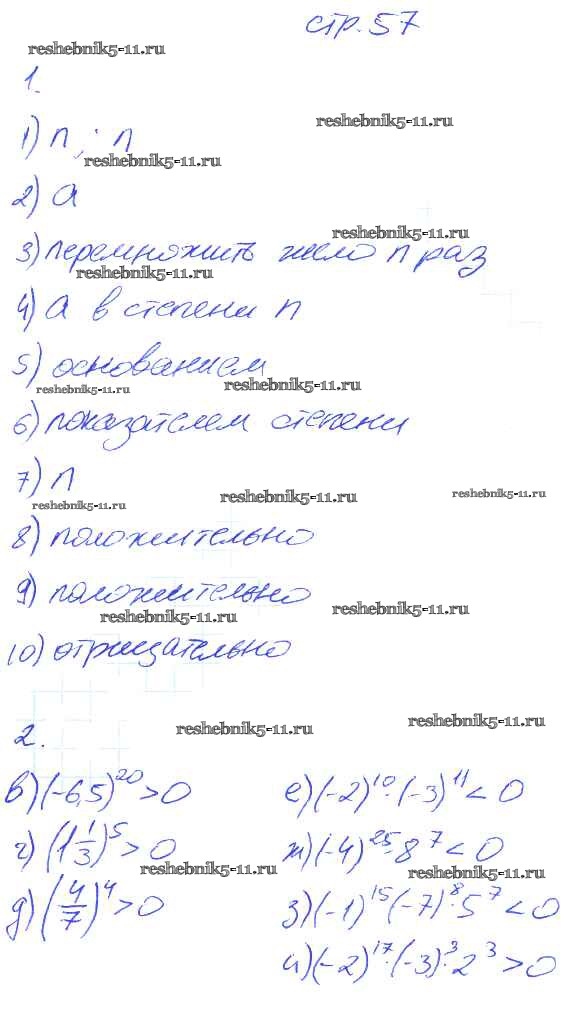 стр. 57
reshebnik5-11.ru
1.
reshebnik5-11.ru
1) n ; n
reshebnik5-11.ru
2) a
reshebnik5-11.ru
3) перемножить число n раз
reshebnik5-11.ru
4) a в степени n
5) основанием
reshebnik5-11.ru reshebnik5-11.ru
6) показателем степени
7) n
reshebnik5-11.ru reshebnik5-11.ru reshebnik5-11.ru
8) положительно
9) положительно
reshebnik5-11.ru reshebnik5-11.ru
10) отрицательно
2.
reshebnik5-11.ru reshebnik5-11.ru
в) (-6,5)^20 > 0
г) (1 1/3)^5 > 0
д) (4/7)^4 > 0
е) (-2)^10 · (-3)^11 < 0
ж) (-4)^25 · 8^7 < 0
reshebnik5-11.ru reshebnik5-11.ru
з) (-1)^15 (-7)^8 · 5^7 < 0
и) (-2)^17 · (-3)^3 · 2^3 > 0